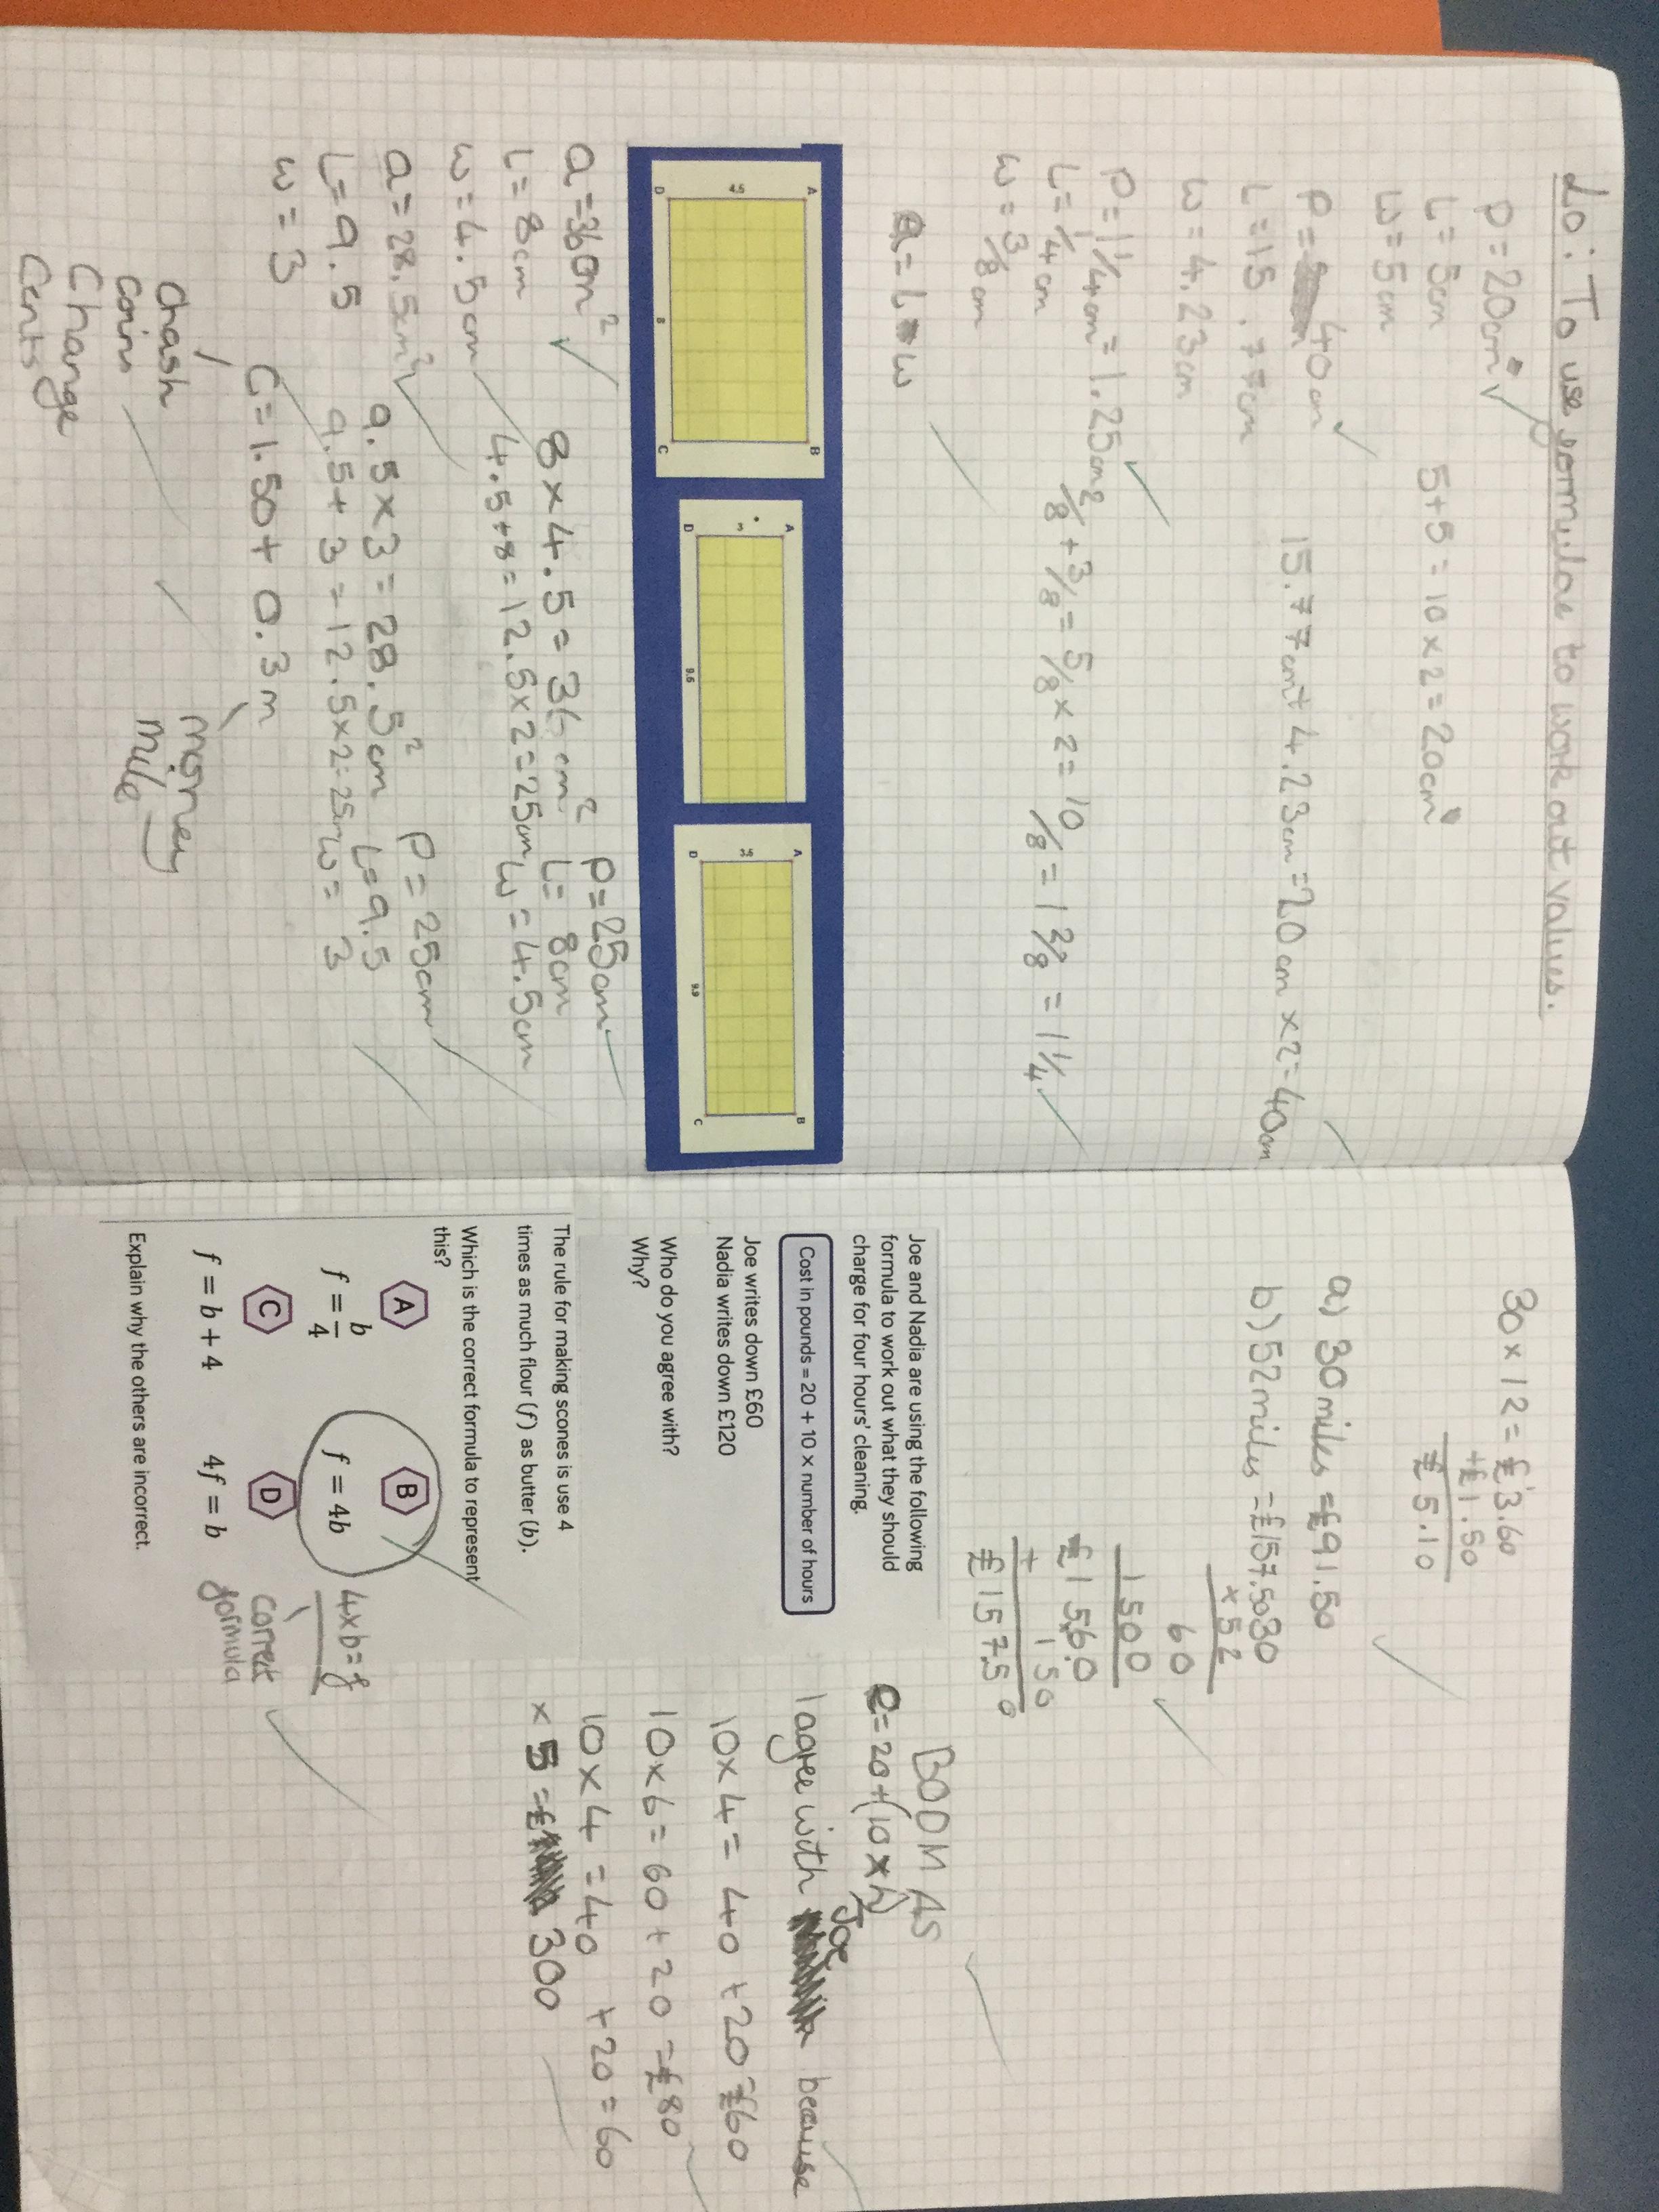 Lo: To use formulae to work out values.
P = 20cm
L = 5cm 5+5 = 10 x 2 = 20cm
W = 5cm
P = 40cm
L = 15.77cm 15.77cm + 4.23cm = 20cm x 2 = 40cm
W = 4.23cm
P = 1 1/4 cm = 1.25cm
L = 1/4 cm 2/8 + 3/8 = 5/8 x 2 = 10/8 = 1 2/8 = 1 1/4
W = 3/8 cm
a = L w
A B
4.5
D 8 C
A
3
D 9.5
A B
3.6
D 9.9 C
a = 36cm² P = 25cm
L = 8cm 8 x 4.5 = 36cm² L = 8cm
W = 4.5cm 4.5 + 8 = 12.5 x 2 = 25cm W = 4.5cm
a = 28.5cm² 9.5 x 3 = 28.5cm² P = 25cm
L = 9.5 9.5 + 3 = 12.5 x 2 = 25cm L = 9.5
W = 3 W = 3
C = 1.50 + 0.3m
Chash
coins
Change
Cents
money
mile
30 x 12 = £3.60
+£1.50
£5.10
a) 30miles = £91.50
b) 52miles = £157.50
30
x 52
60
1500
£1560
+ 150
£157.50
Joe and Nadia are using the following
formula to work out what they should
charge for four hours' cleaning.
Cost in pounds = 20 + 10 × number of hours
Joe writes down £60
Nadia writes down £120
Who do you agree with?
Why?
BODMAS
C = 20 + (10 x h)
I agree with Joe because
10 x 4 = 40 + 20 = £60
10 x 6 = 60 + 20 = £80
10 x 4 = 40 + 20 = 60
x 5 = £ 300
The rule for making scones is use 4
times as much flour (f) as butter (b).
Which is the correct formula to represent
this?
A B
f = b/4 f = 4b
C D
f = b + 4 4f = b
Explain why the others are incorrect.
4xb=f
correct
formula